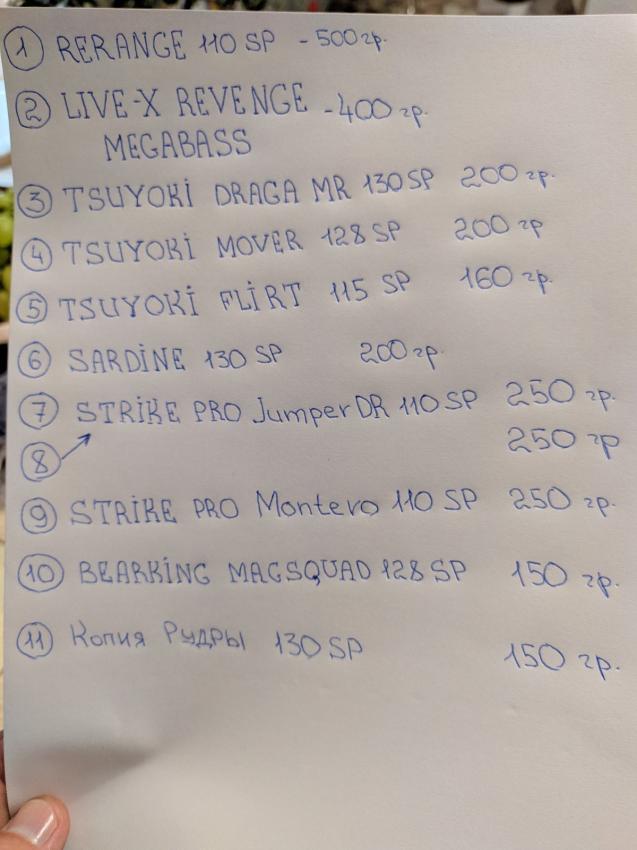 1 RERANGE 110 SP - 500 гр.
2 LIVE-X REVENGE - 400 гр.
MEGABASS
3 TSUYOKI DRAGA MR 130 SP 200 гр.
4 TSUYOKI MOVER 128 SP 200 гр
5 TSUYOKI FLIRT 115 SP 160 гр.
6 SARDINE 130 SP 200 гр.
7 STRIKE PRO Jumper DR 110 SP 250 гр.
8 250 гр
9 STRIKE PRO Montero 110 SP 250 гр.
10 BEARKING MAGSQUAD 128 SP 150 гр.
11 Копия Рудры 130 SP 150 гр.